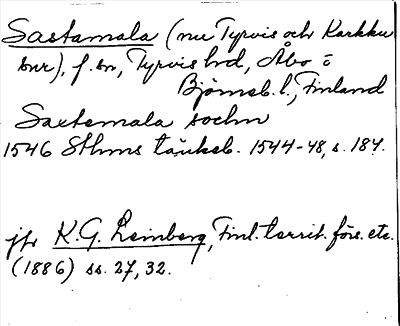 Sastamala (nu Tyrvis och Karkku
snr), f. sn, Tyrvis hd, Åbo o
Björneb. l., Finland
Sastamala sochn
1546 Sthms tänkeb. 1544-48, s. 187.
jfr K.G. Leinberg, Finl. territ. förs. etc.
(1886) ss. 27, 32.